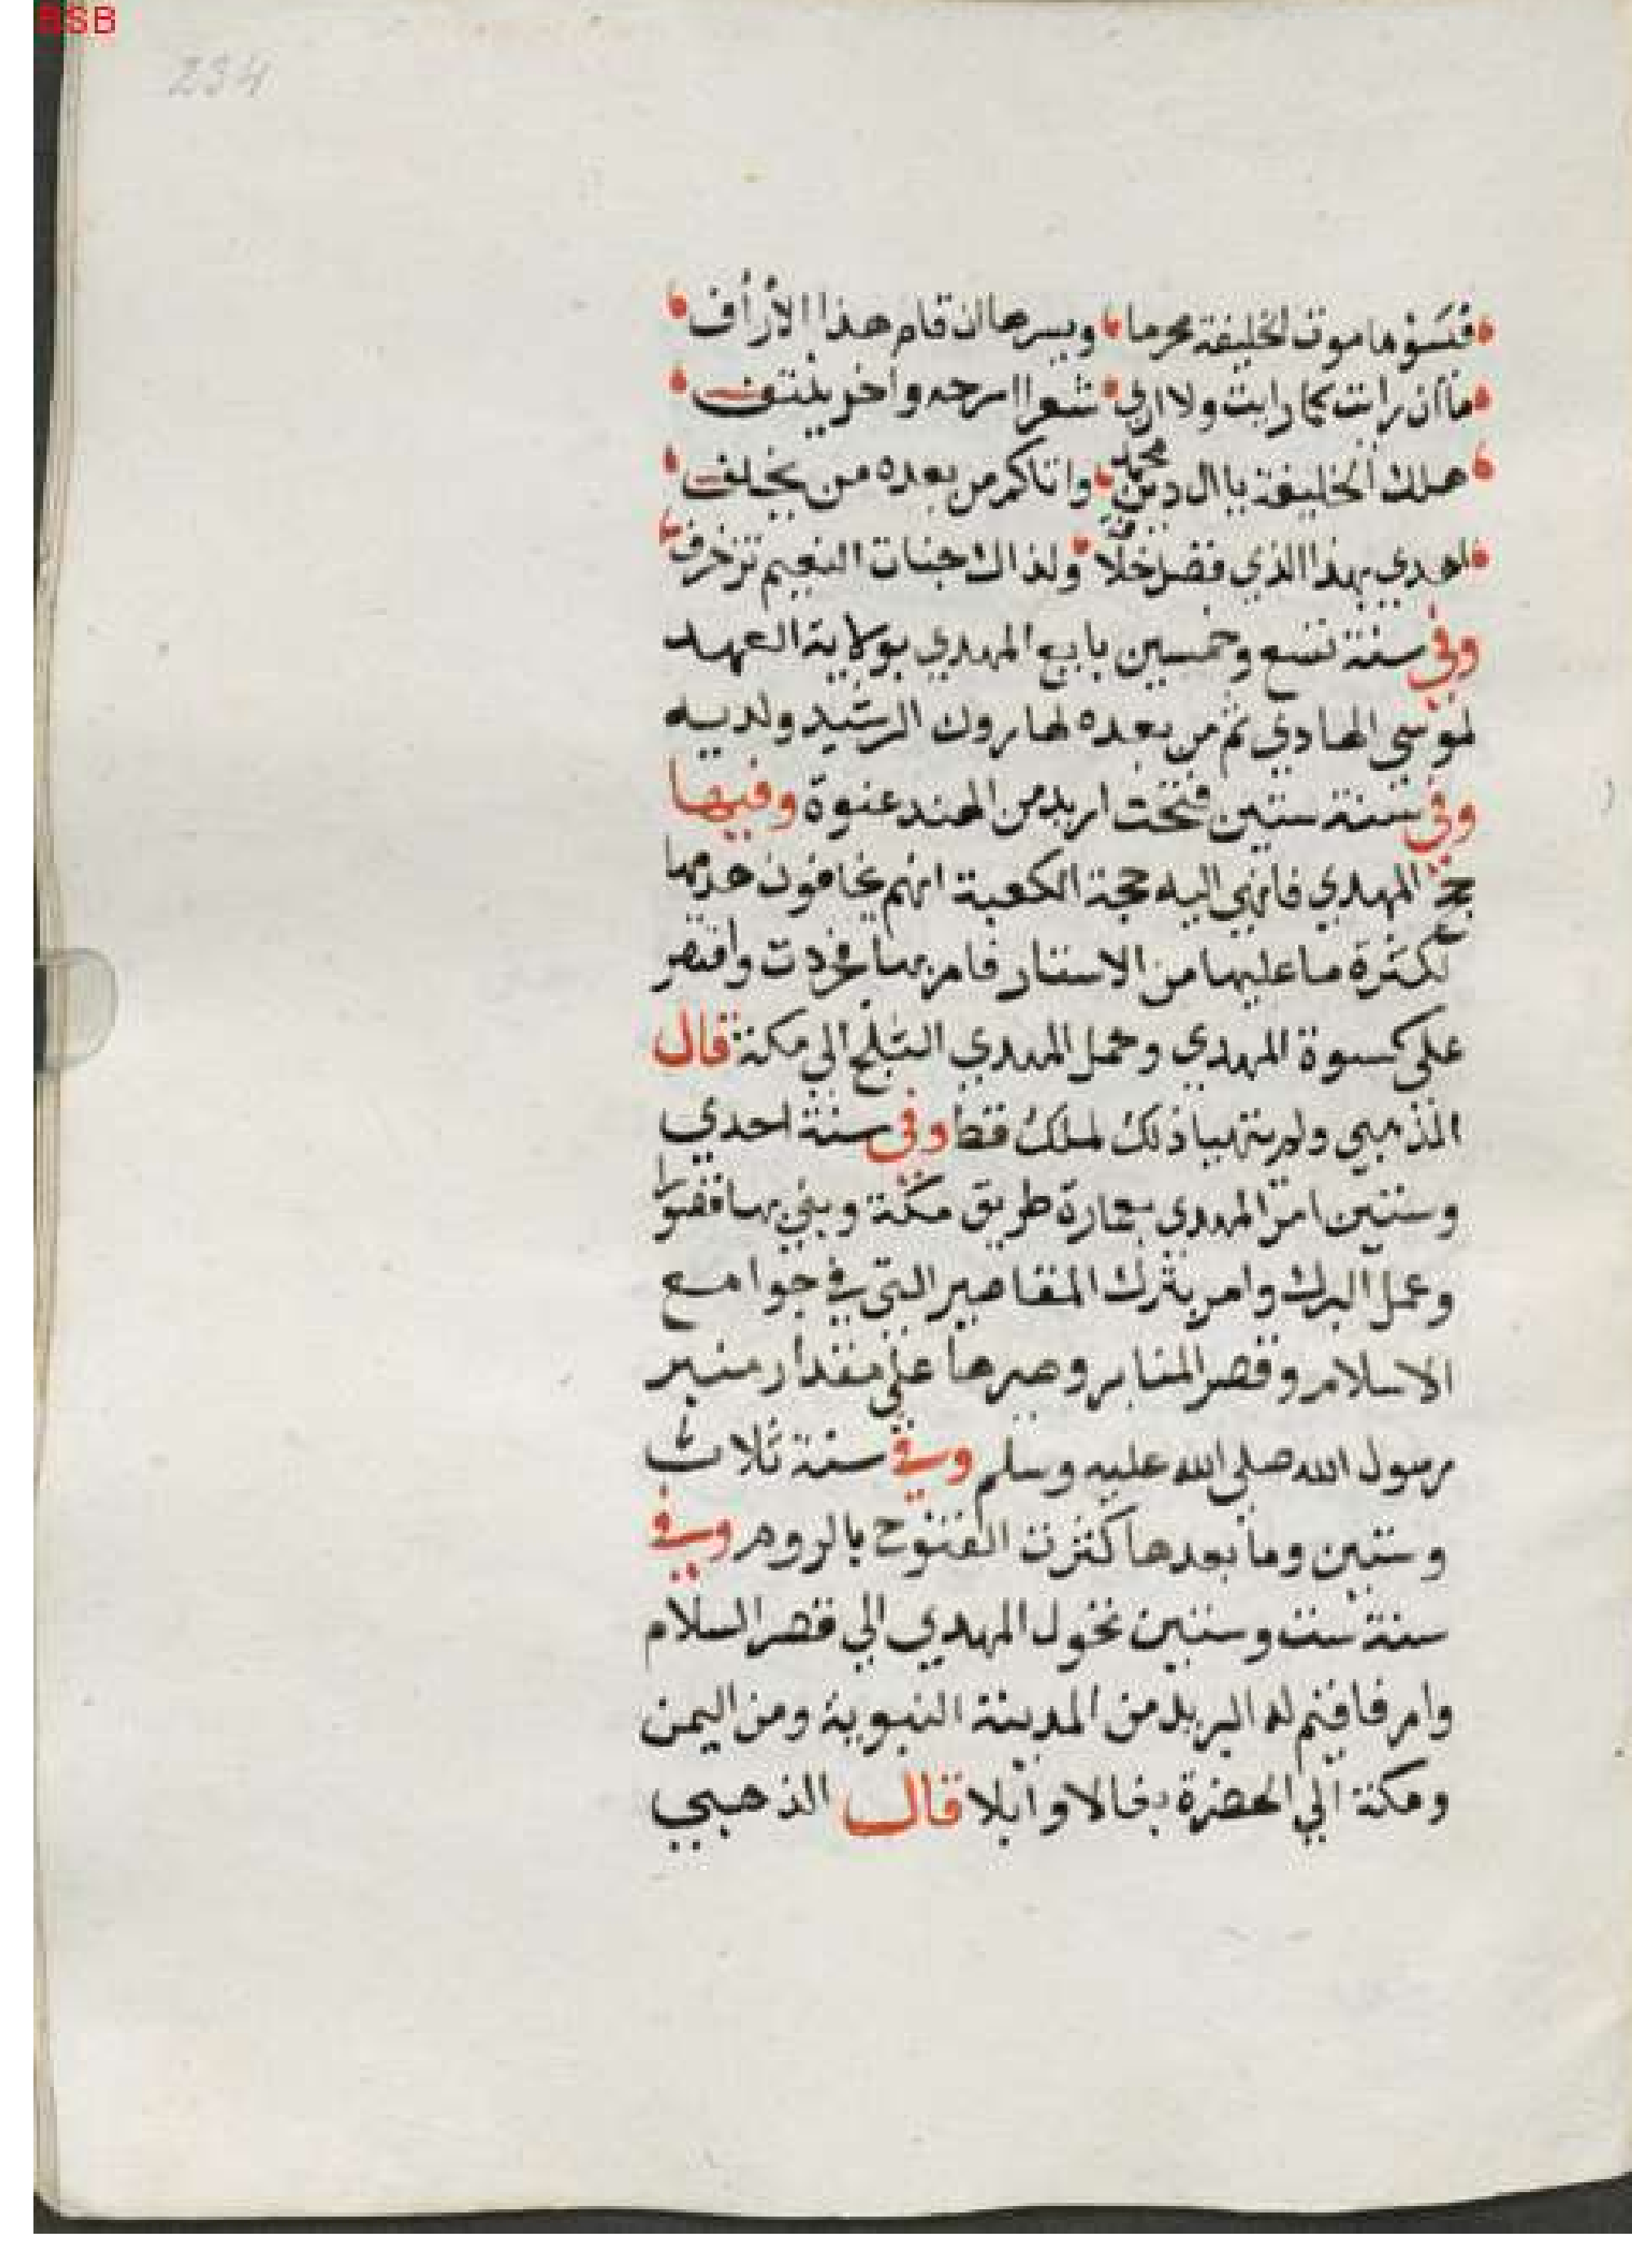 BSB
234
فتسؤها موت الخليفة محرما ويسرها ان قام هذا الأرأف
ما ان رات كما رايت ولا اري شعرا اسرحه واخر ينتف
هلك الخليفة يا ال دين محمد واتاكم من بعده من يخلف
اهدي بهذا الذي فضل خلافة ولذاك جنات النعيم تزخرف
وفي سنة تسع وخمسين بايع المهدي بولاية العهد
لموسي الهادي ثم من بعده لهارون الرشيد ولديه
وفي سنة ستين فتحت اربد من الهند عنوة وفيها
حج المهدي فانهي اليه حجبة الكعبة انهم يخافون هدمها
لكثرة ما عليها من الاستار فامر بها فجردت واقتصر
علي كسوة المهدي وحمل المهدي الثلج الي مكة قال
الذهبي ولم يتهيا ذلك لملك قط وفي سنة احدي
وستين امر المهدي بعمارة طريق مكة وبني بها قصورا
وعمل البرك وامر بترك المقاصير التي في جوامع
الاسلام وقصر المنابر وصيرها علي مقدار منبر
رسول الله صلي الله عليه وسلم وفي سنة ثلاث
وستين وما بعدها كثرت الفتوح بالروم وفي
سنة ست وستين تحول المهدي الي قصر السلام
وامر فاقيم له البريد من المدينة النبوية ومن اليمن
ومكة الي الحضرة بغالا وابلا قال الذهبي